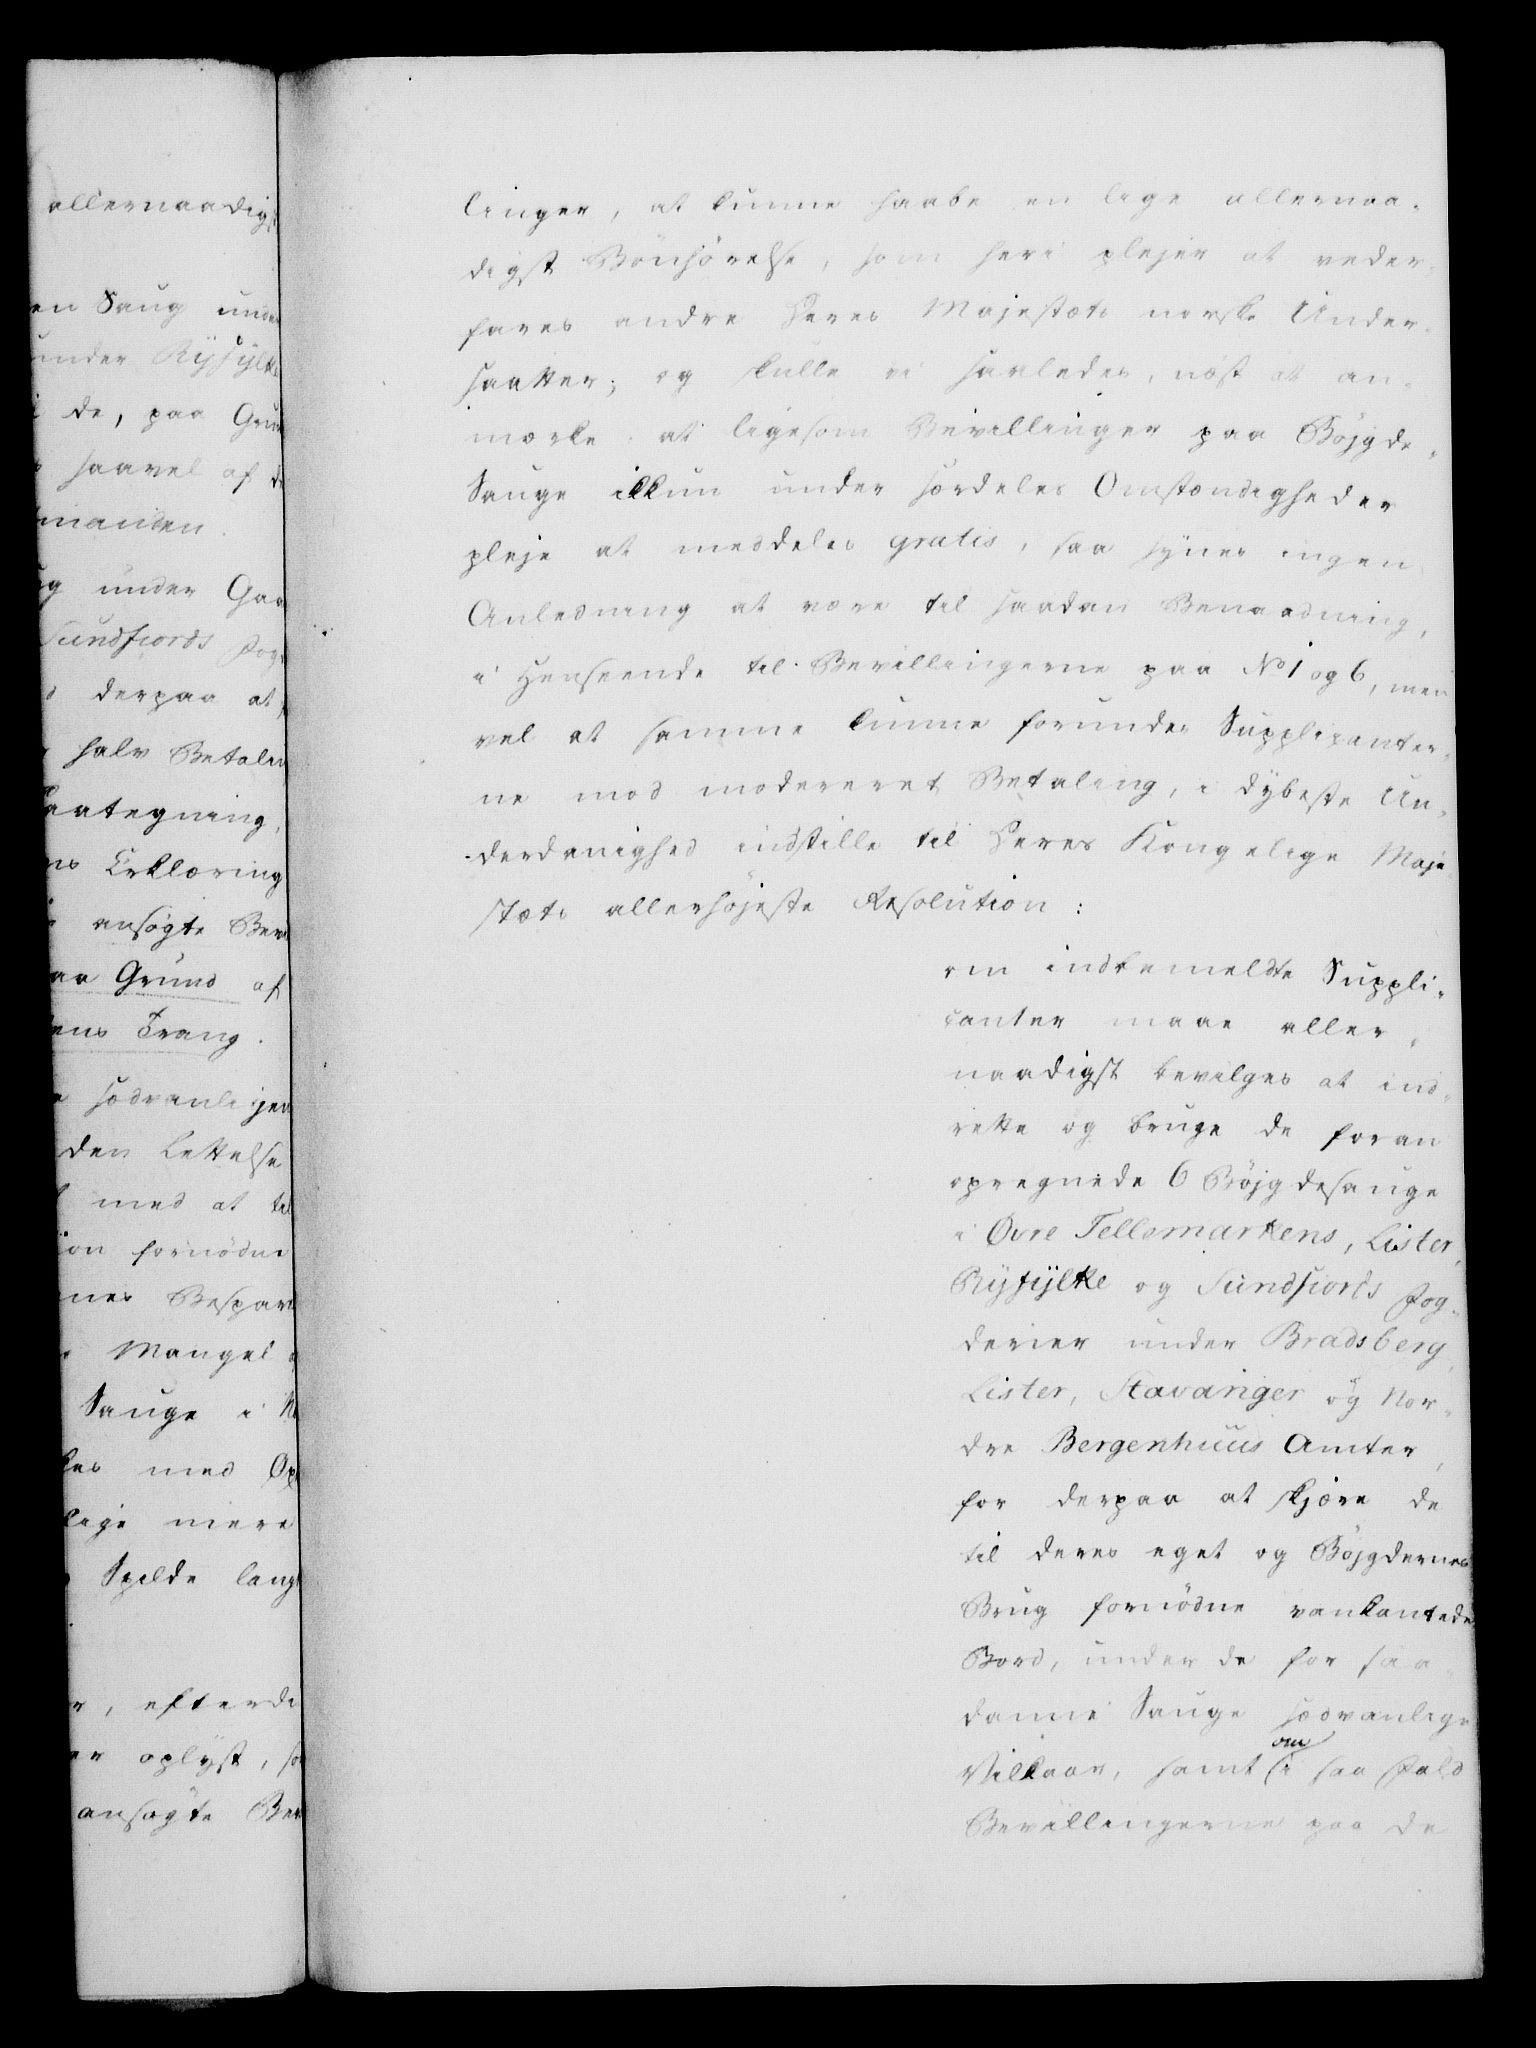 allernaadigst
en Saug under
under Ryfylke
de, paa Grund
saavel af de
manden.
under Gaa
Sundfiords Fog
derpaa at
halv Betaling
aategning,
Erklæring
ansøgte Bevil
Grund af
ens Trang.
sædvanlige
den Lettelse
med at til
ion fornødne
nes Bespar
Mangel
Sauge i N
med Op
lige mere
Spilde lang
, efterdi
er oplyst, so
ansøgte Bev
linger, at kunne haabe en lige allernaa-
digst Bönhörelse, som heri plejer at veder-
fares andre Deres Majestæts norske Under-
saatter; og skulle vi saaledes, næst at an-
mærke: at ligesom Bevillinger paa Böjgde-
Sauge ikkun under særdeles Omstændigheder
pleje at meddeles gratis, saa synes ingen
Anledning at være til saadan Benaadning,
i Henseende til Bevillingerne paa No 1 og 6, men
vel at samme kunne forundes Supplicanter-
ne mod modereret Betaling, i dybeste Un-
derdanighed indstille til Deres Kongelige Maje-
stæts allerhöjeste Resolution:
om indbemeldte Suppli-
canter maae aller-
naadigst bevilges at ind-
rette og bruge de foran
opregnede 6 Böjgdesauge
i Øvre Tellemarkens, Lister,
Ryfylke og Sundfiords Fog-
derier under Bradsberg,
Lister, Stavanger og Nor-
dre Bergenhuus Amter,
for derpaa at skjære de
til deres eget og Böjgdernes
Brug fornödne vankantede
Bord, under de for saa-
danne Sauge sædvanlige
Vilkaar, samt om i saa Fald
Bevillingerne paa de